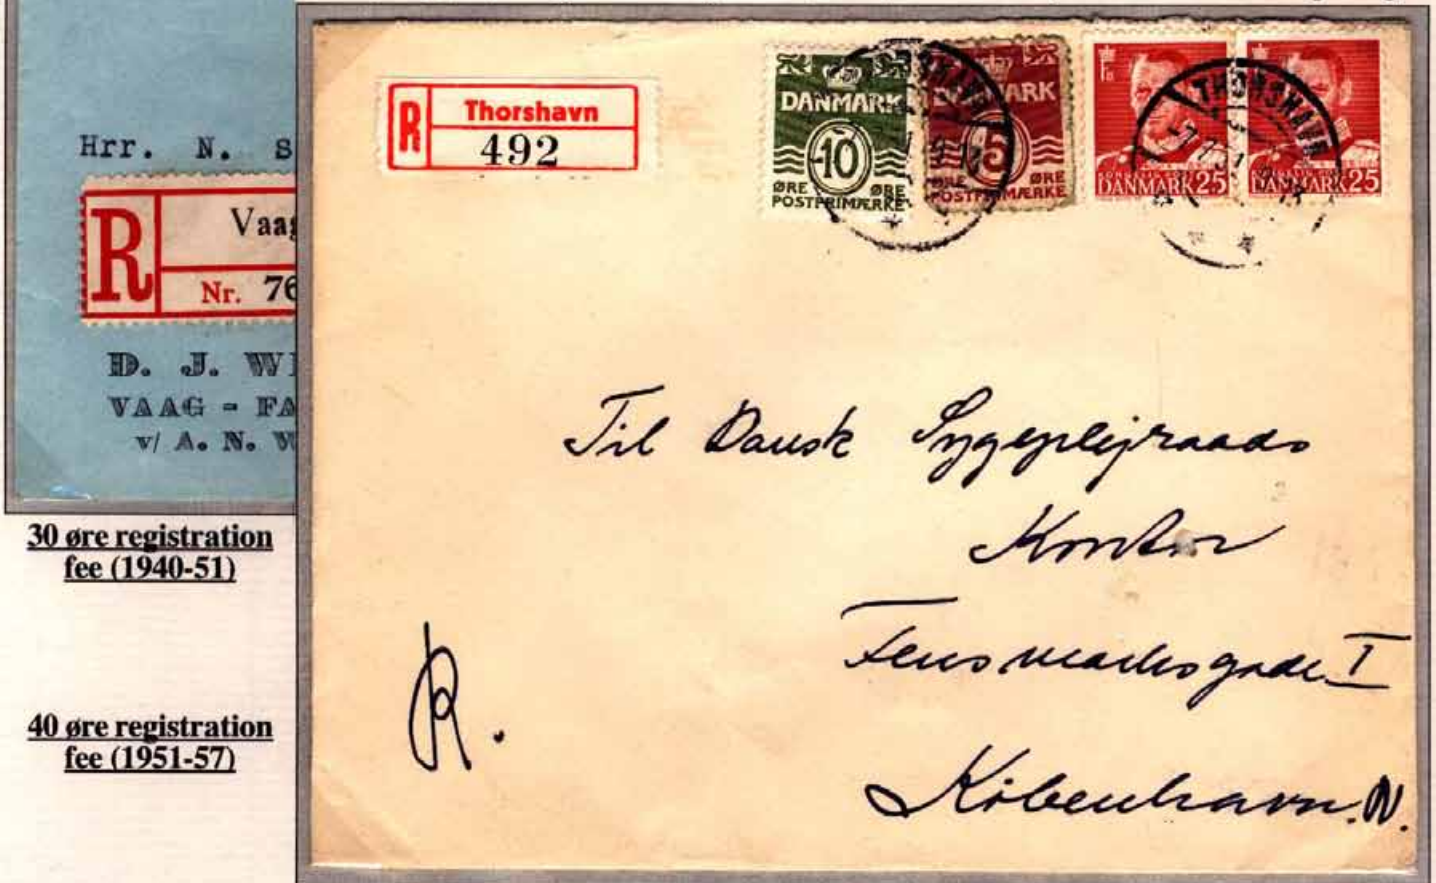 Hrr. N. S
R
Vaag
Nr. 76
D. J. WI
VAAG - FA
v/ A. N. W
30 øre registration
fee (1940-51)
40 øre registration
fee (1951-57)
R
Thorshavn
492
DANMARK
10
ØRE ØRE
POSTFRIMÆRKE
DANMARK
5
ØRE ØRE
POSTFRIMÆRKE
DANMARK 25
DANMARK 25
THORSHAVN
Til Dansk Sygeplejraads
Kontor
Fensmarksgade I
København. N.
R.